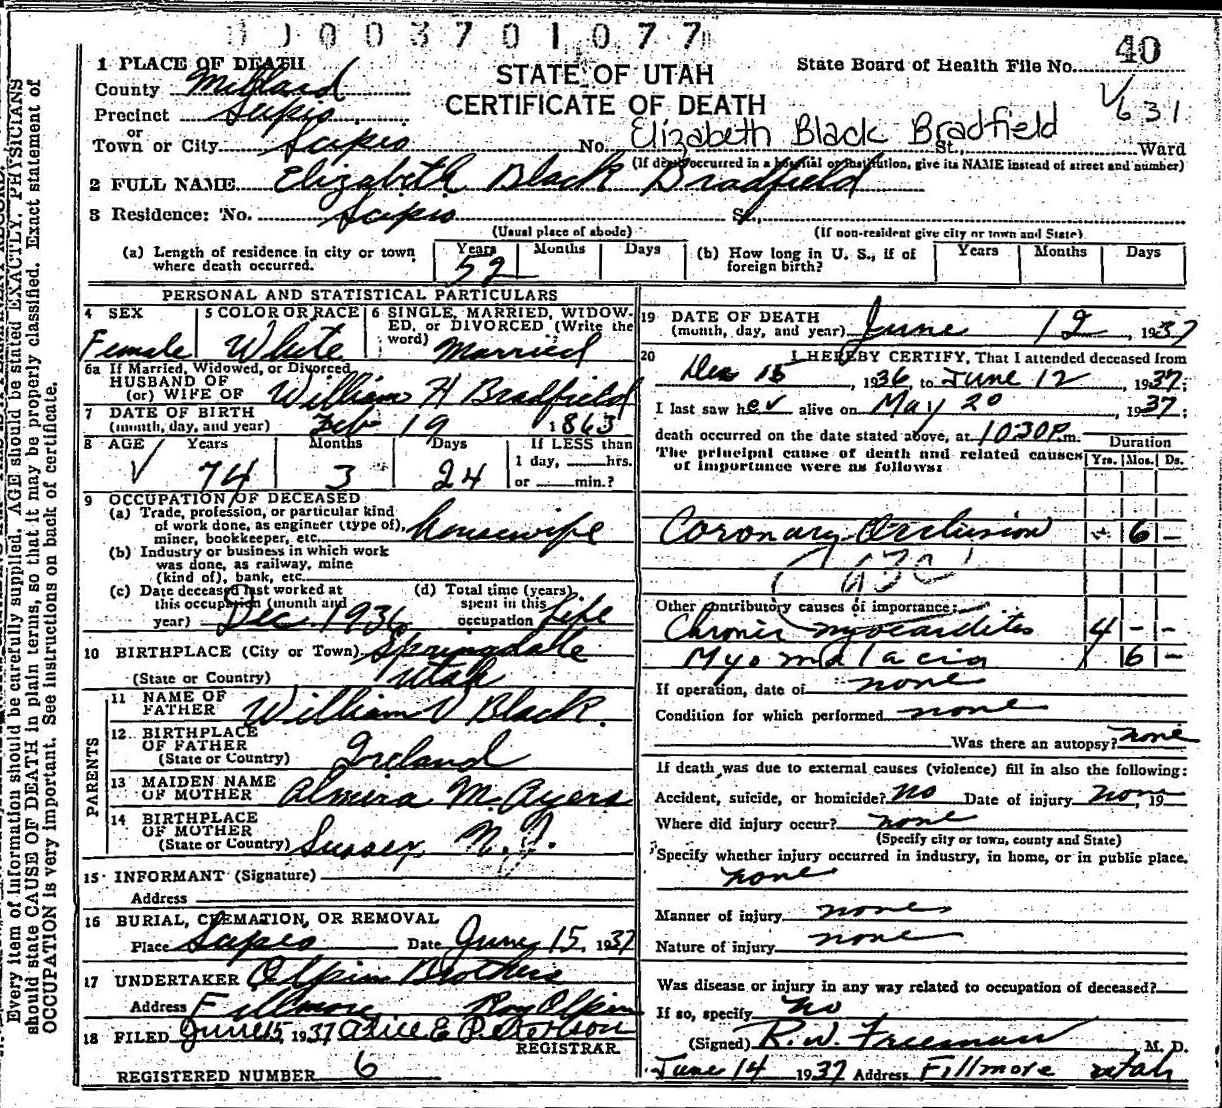 0 0 0 0 3 7 0 1 0 7 7
40
1 PLACE OF DEATH
STATE OF UTAH
State Board of Health File No.
County Millard
CERTIFICATE OF DEATH
631
Precinct Scipio
or
Town or City Scipio No. Elizabeth Black Bradfield St., Ward
(If death occurred in a hospital or institution, give its NAME instead of street and number)
2 FULL NAME Elizabeth Black Bradfield
3 Residence: No. Scipio St.,
(Usual place of abode) (If non-resident give city or town and State)
(a) Length of residence in city or town where death occurred. Years 52 Months Days (b) How long in U. S., if of foreign birth? Years Months Days
PERSONAL AND STATISTICAL PARTICULARS
4 SEX Female
5 COLOR OR RACE White
6 SINGLE, MARRIED, WIDOWED, or DIVORCED (Write the word) Married
6a If Married, Widowed, or Divorced
HUSBAND OF
(or) WIFE OF William H Bradfield
7 DATE OF BIRTH
(month, day, and year) Feb 19 1863
8 AGE Years Months Days If LESS than
1 day, hrs.
74 3 24 or min.?
9 OCCUPATION OF DECEASED
(a) Trade, profession, or particular kind
of work done, as engineer (type of),
miner, bookkeeper, etc. housewife
(b) Industry or business in which work
was done, as railway, mine
(kind of), bank, etc.
(c) Date deceased last worked at
this occupation (month and
year) Dec. 1936
(d) Total time (years)
spent in this
occupation Life
10 BIRTHPLACE (City or Town) Springdale
(State or Country) Utah
PARENTS
11 NAME OF
FATHER William V Black.
12 BIRTHPLACE
OF FATHER
(State or Country) Ireland
13 MAIDEN NAME
OF MOTHER Almira M. Ayers
14 BIRTHPLACE
OF MOTHER
(State or Country) Sussex, N.J.
15 INFORMANT (Signature)
Address
16 BURIAL, CREMATION, OR REMOVAL
Place Scipio Date June 15, 1937
17 UNDERTAKER Olpin Brothers
Address Fillmore Roy Olpin
18 FILED June 15, 1937 Alice E Peterson
REGISTRAR
REGISTERED NUMBER 6
19 DATE OF DEATH
(month, day, and year) June 12, 1937
20 I HEREBY CERTIFY, That I attended deceased from
Dec 15, 1936, to June 12, 1937;
I last saw her alive on May 20, 1937;
death occurred on the date stated above, at 10:30 P.m.
Duration
The principal cause of death and related causes
of importance were as follows:
Yrs. Mos. Ds.
Coronary Occlusion 6 –
Other contributory causes of importance:
Chronic myocarditis 4 - -
Myomalacia 6 –
If operation, date of none
Condition for which performed none
Was there an autopsy? none
If death was due to external causes (violence) fill in also the following:
Accident, suicide, or homicide? No Date of injury none, 19
Where did injury occur? none
(Specify city or town, county and State)
Specify whether injury occurred in industry, in home, or in public place.
none
Manner of injury none
Nature of injury none
Was disease or injury in any way related to occupation of deceased?
If so, specify No
(Signed) R. W. Freeman M. D.
June 14 1937 Address Fillmore Utah
Every item of information should be carefully supplied. AGE should be stated EXACTLY. PHYSICIANS
should state CAUSE OF DEATH in plain terms, so that it may be properly classified. Exact statement of
OCCUPATION is very important. See instructions on back of certificate.